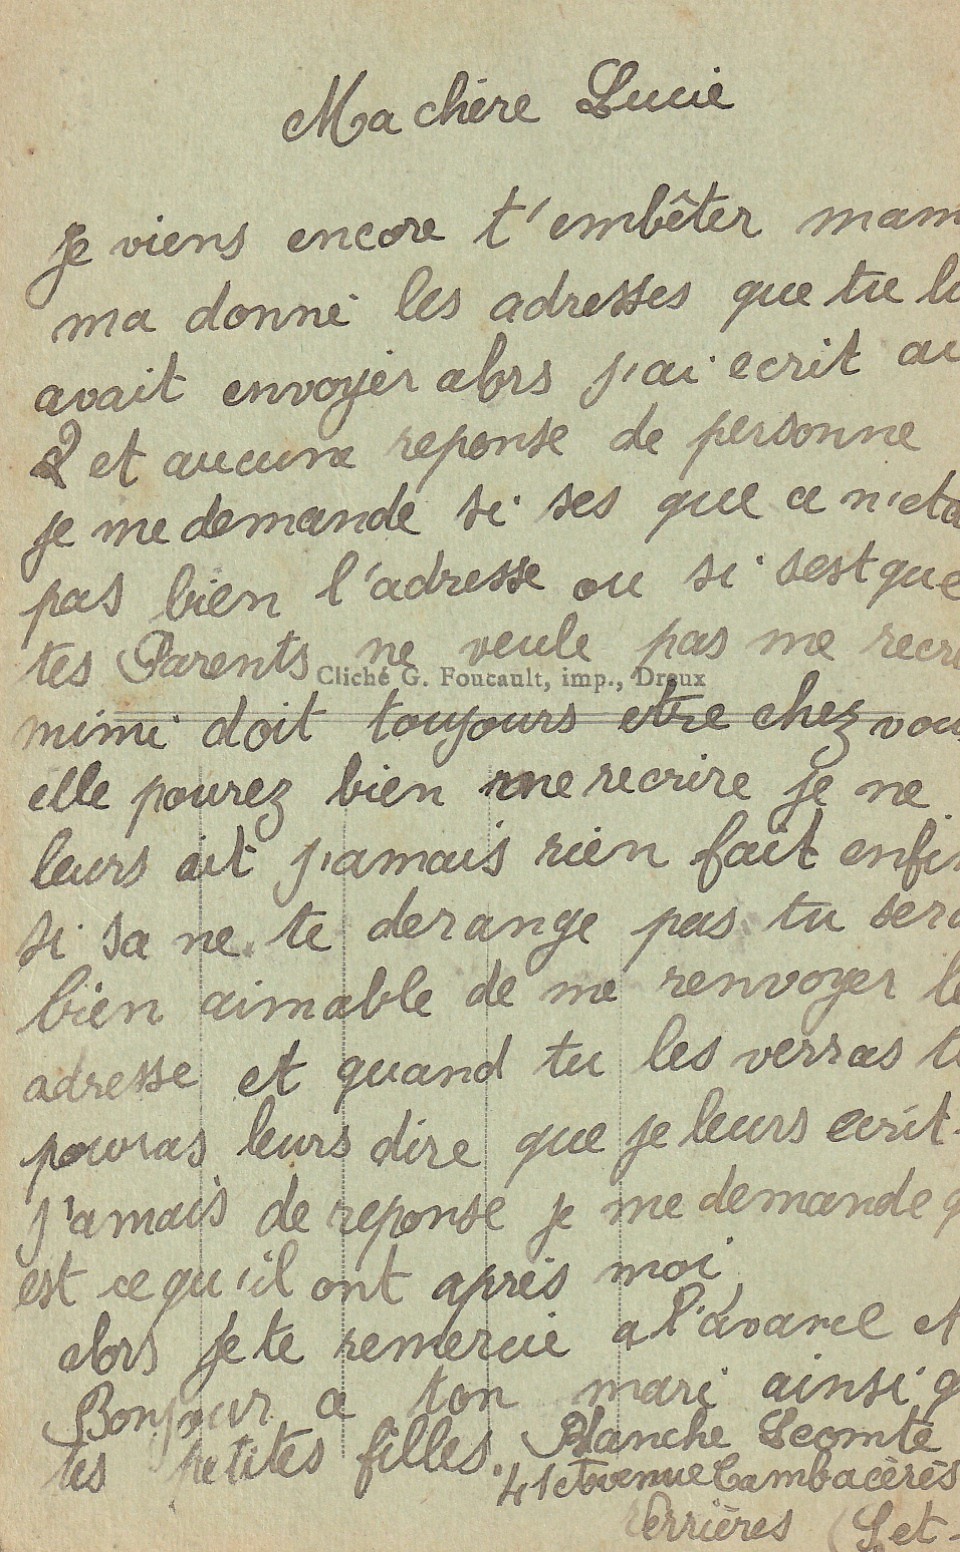 Ma chère Lucie
je viens encore t'embêter mam
ma donné les adresses que tu lu
avait envoyer alors j'ai ecrit au
2 et aucune reponse de personne
je me demande si ses que ce n'eta
pas bien l'adresse ou si sest que
tes Parents ne veule pas me recri
Cliché G. Foucault, imp., Dreux
mimi doit toujours etre chez vous
elle pourez bien me recrire je ne
leurs ait j'amais rien fait enfin
si sa ne te derange pas tu sera
bien aimable de me renvoyer le
adresse et quand tu les verras tu
pouras leurs dire que je leurs ecrit
j'amais de reponse je me demande q
est ce qu'il ont après moi
alors je te remercie a l'avance et
Bonjour a ton mari ainsi q
tes petites filles. Blanche Lecomte
41 Avenue Cambacérès
Verrières (S et